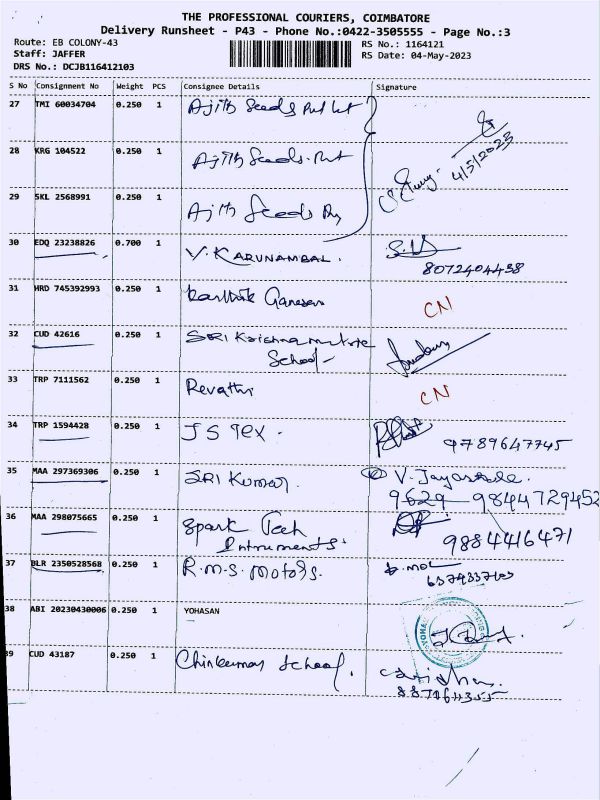 THE PROFESSIONAL COURIERS, COIMBATORE
Delivery Runsheet - P43 - Phone No.:0422-3505555 - Page No.:3
Route: EB COLONY-43
Staff: JAFFER
DRS No.: DCJB116412103
RS No.: 1164121
RS Date: 04-May-2023
S No Consignment No Weight PCS Consignee Details Signature
27 TMI 60034704 0.250 1 Ajith Seeds Pvt Lt
28 KRG 104522 0.250 1 Ajith Seeds. Pvt
4/5/2023
29 SKL 2568991 0.250 1 Ajith Seeds
30 EDQ 23238826 0.700 1 V. KARUNAMBAL.
8072404438
31 HRD 745392993 0.250 1 Karthik Ganesan CN
32 CUD 42616 0.250 1 SRI Krishna
School
33 TRP 7111562 0.250 1 Revathi CN
34 TRP 1594428 0.250 1 JS Tex. 9789647745
35 MAA 297369306 0.250 1 SRI Kumar. V. 
9629 9844729452
36 MAA 298075665 0.250 1 Spark Tech
Intruments. 9884416471
37 BLR 2350528568 0.250 1 R.M.S. Motors.
38 ABI 20230430006 0.250 1 YOHASAN
39 CUD 43187 0.250 1 School.